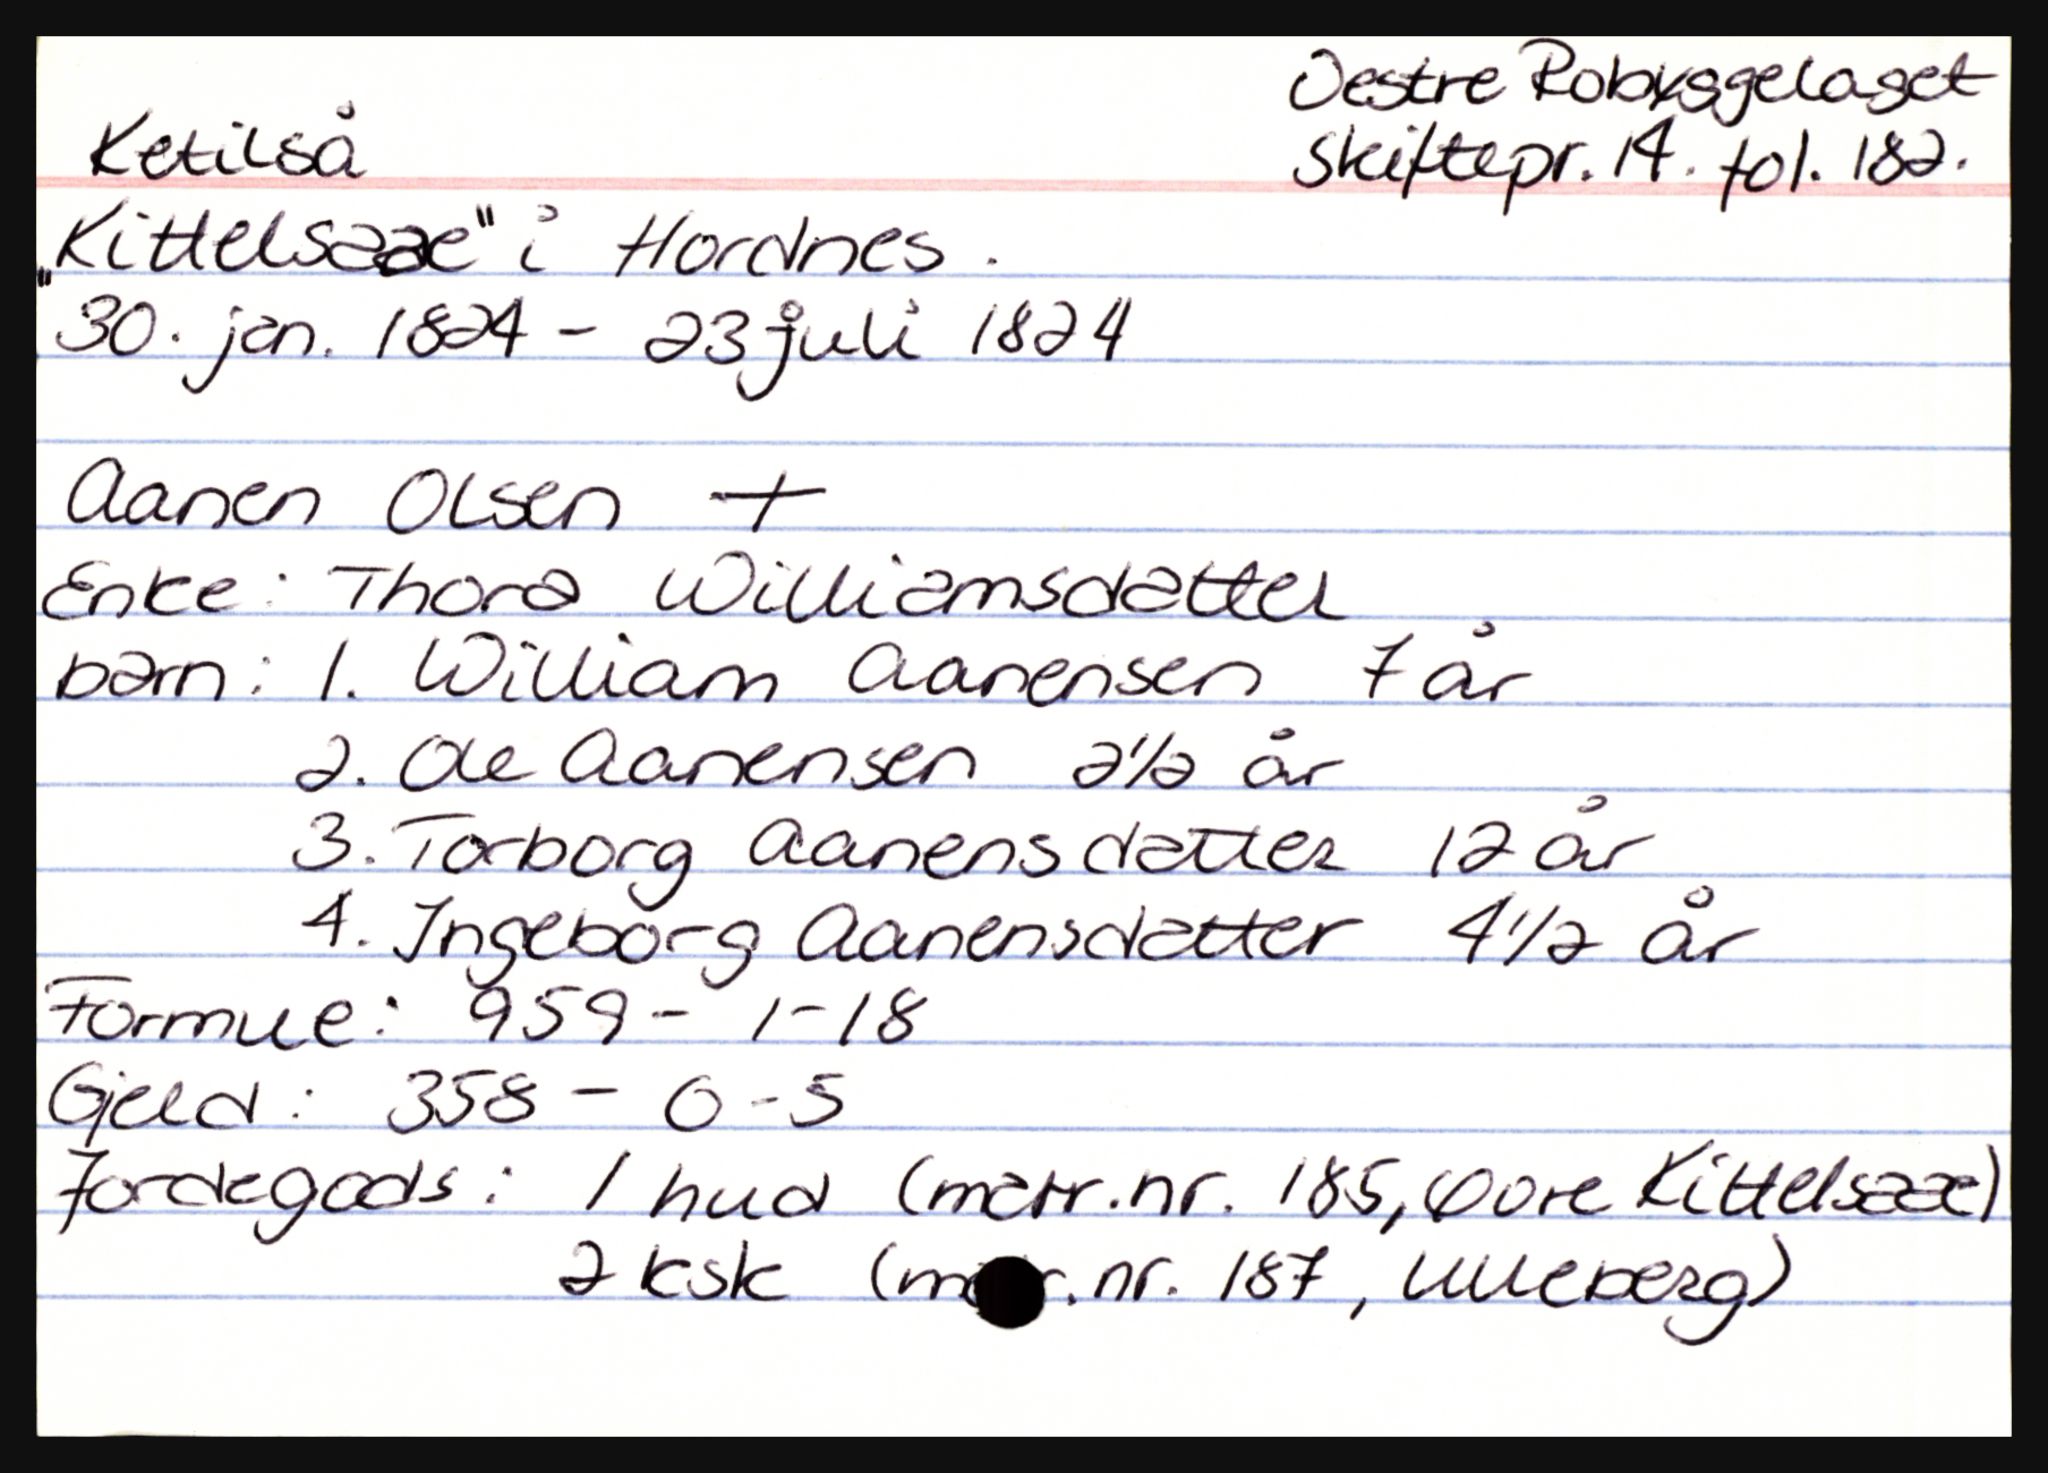 Oestre Robyggelaget
Ketilså
Skiftepr. 14. fol. 182.
„Kittelsaae" i Hordnes.
30. jan. 1824 - 23 juli 1824
Aanen Olsen +
Enke: Thora Williamsdatter
barn: 1. William Aanensen 7 år
2. Ole Aanensen 2 1/2 år
3. Torborg Aanensdatter 12 år
4. Ingeborg Aanensdatter 4 1/2 år
Formue: 959 - 1 - 18
Gjeld: 358 - 0 - 5
Jordegods: 1 hud (matr.nr. 185, Øvre Kittelsaae)
2 ksk (matr.nr. 187, Ulleberg)